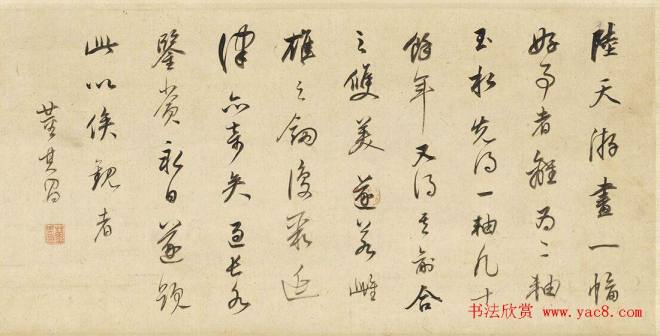 陸天游畫一幅
好事者離為二軸
玉 先得一軸凡十
餘年又得其前合
之雙美遂若雌
雄之劍復歸延
津亦奇矣過長水
鑒賞永日遂題
此以俟觀者
董其昌
书法欣赏 www.yac8.com